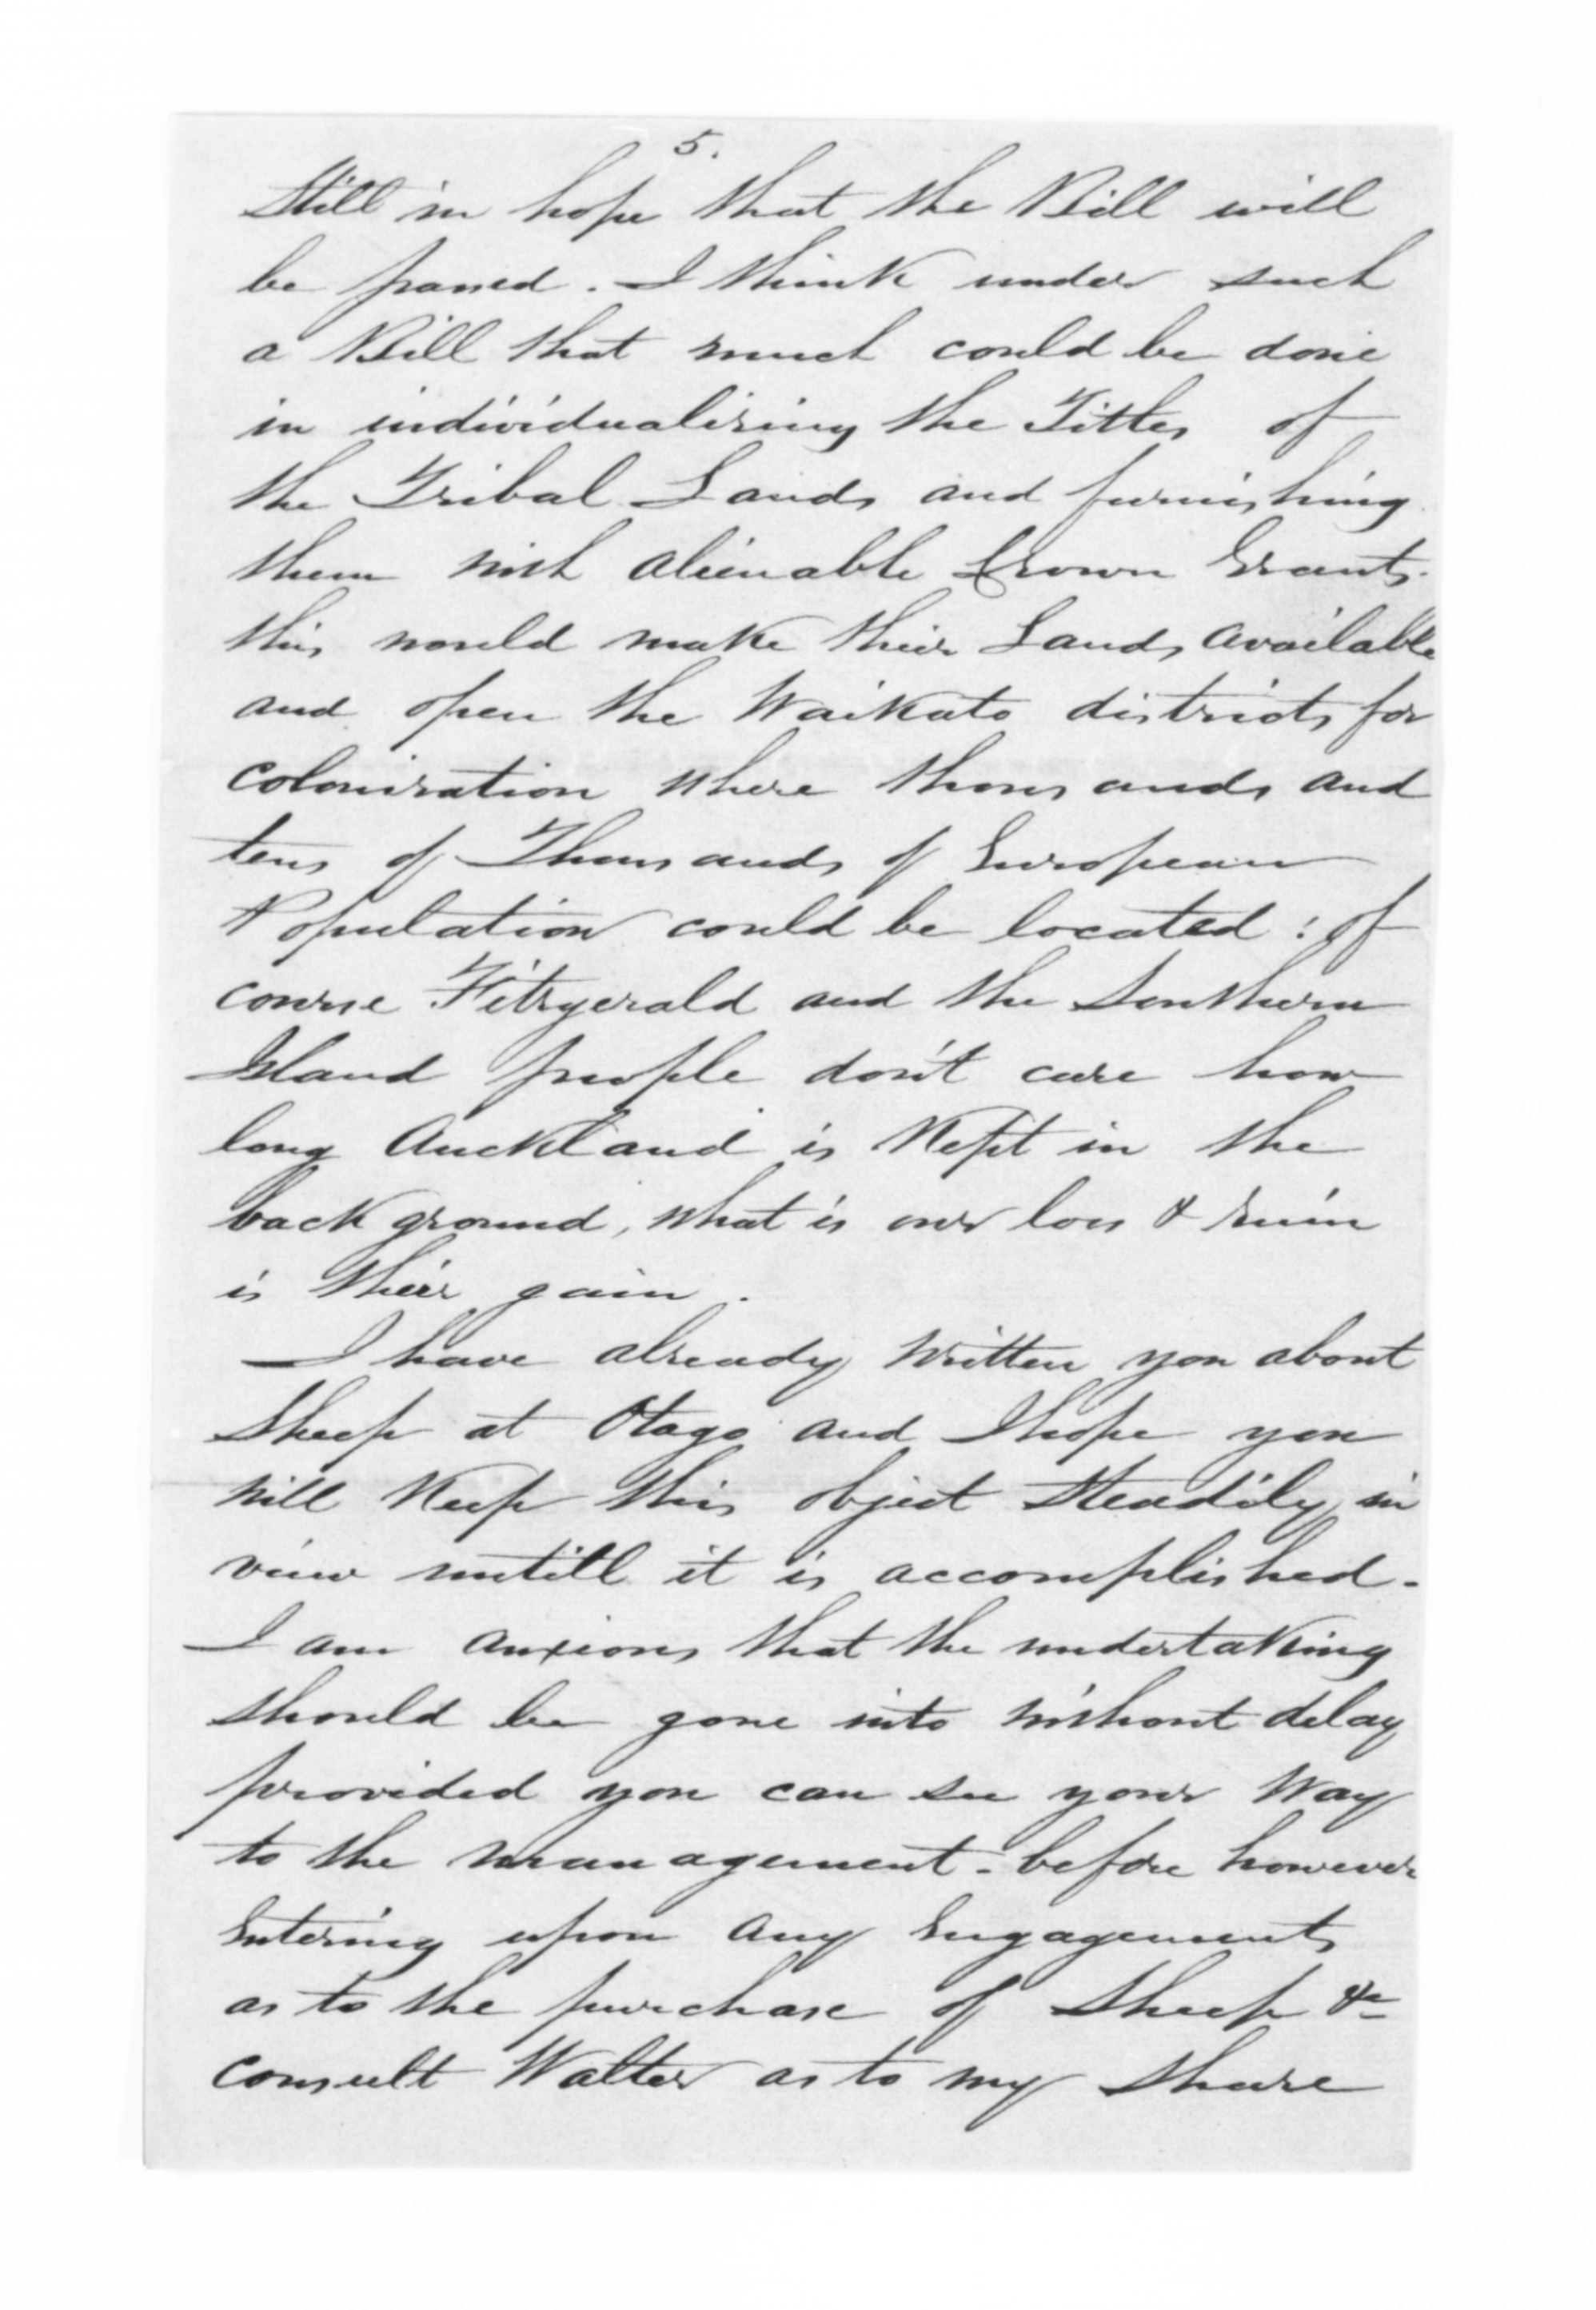 5.
Still in hope that the Bill will
be passed. I think under such
a Bill that much could be done
in individualising the Titles of
the Tribal Lands and furnishing
them with alienable Crown Grants.
this would make their Lands available
and open the Waikato districts for
colonisation where thousands and
tens of Thousands of European
Population could be located: of
course Fitzgerald and the Southern
Island people don't care how
long Auckland is Kept in the
back ground, what is our loss & ruin
is their gain.
I have already written you about
Sheep at Otago and I hope you
will Keep this object Steadily in
view untill it is accomplished -
I am anxious that the undertaking
should be gone into without delay
provided you can see your Way
to the management - before however
Entering upon any Engagements
as to the purchase of Sheep &c
consult Walter as to my Share